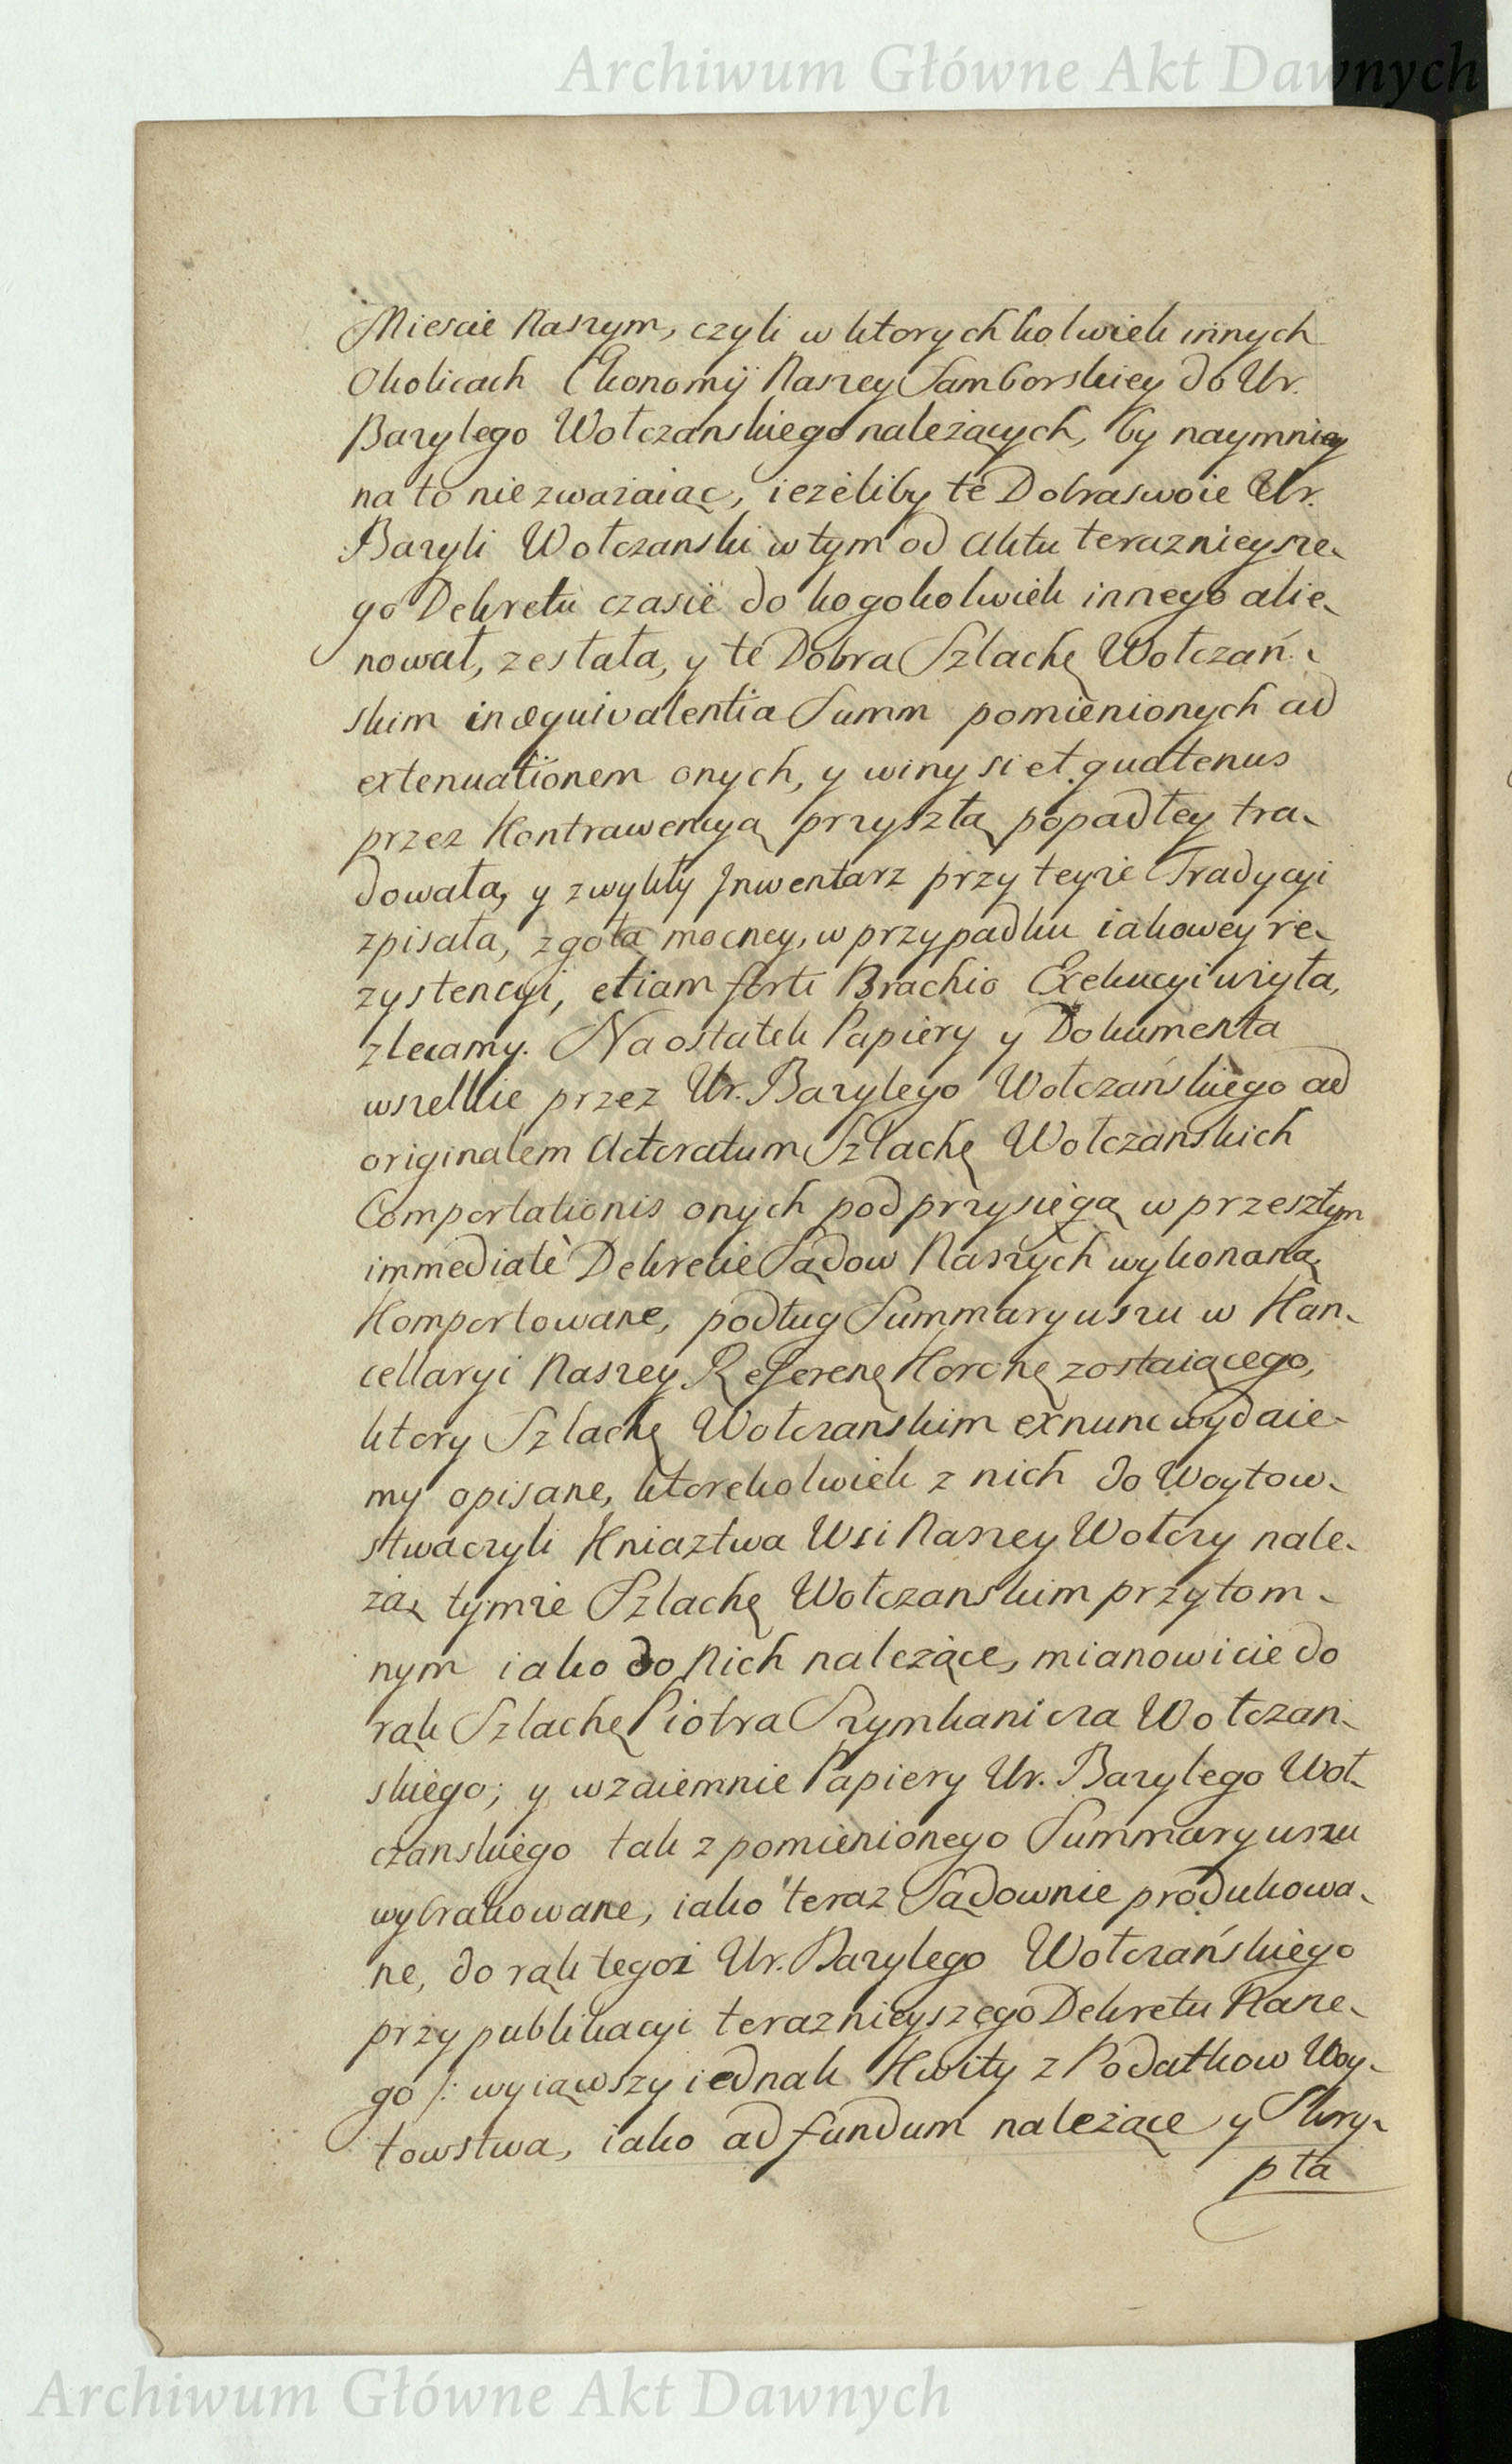 Archiwum Główne Akt Dawnych
Miescie Naszym, czyli w ktorychkolwiek innych
Okolicach Ekonomij Naszey Samborskiey do Ur.
Bazylego Wołczanskiego należących, by naymniey
na to niezważaiąc, ieżeliby te Dobra swoie Ur.
Bazyli Wołczanski w tym od Aktu teraznieysze-
go Dekretu czasie do kogokolwiek innego alie-
nował, zesłała, y te Dobra Szlachę Wołczań-
skim in æquivalentia Summ pomienionych ad
extenuationem onych, y winy si et quatenus
przez Kontrawencyą przyszłą popadłey tra-
dowała, y zwykły Inwentarz przy teyże Tradycyi
zpisała, zgoła mocney, w przypadku iakowey re-
zystencyi, etiam forti Brachio Exekucyi użyła,
zlecamy. Na ostatek Papiery y Dokumenta
wszelkie przez Ur. Bazylego Wołczańskiego ad
originalem Actoratum Szlachę Wołczańskich
Comportationis onych pod przysięgą w przeszłym
immediatè Dekrecie Sądow Naszych wykonaną
Komportowane, podług Summaryuszu w Kan-
cellaryi Naszey Referenę Koronę zostaiącego,
ktory Szlachę Wołczanskim exnunc wydaie-
my opisane, ktorekolwiek z nich do Woytow-
stwa czyli Kniaztwa Wsi Naszey Wołczy nale-
żą, tymże Szlachę Wołczanskim przytom-
nym iako do Nich należące, mianowicie do
rąk Szlachę Piotra Szymkanicza Wołczan-
skiego; y wzaiemnie Papiery Ur. Bazylego Woł-
czanskiego tak z pomienionego Summaryuszu
wybrakowane, iako teraz Sądownie produkowa-
ne, do rąk tegoż Ur. Bazylego Wołczańskiego
przy publikacyi teraznieyszego Dekretu Nasze-
go /: wyiąwszy iednak Kwity z Podatkow Woy-
towstwa, iako ad fundum należące y Skry-
pta
Archiwum Główne Akt Dawnych